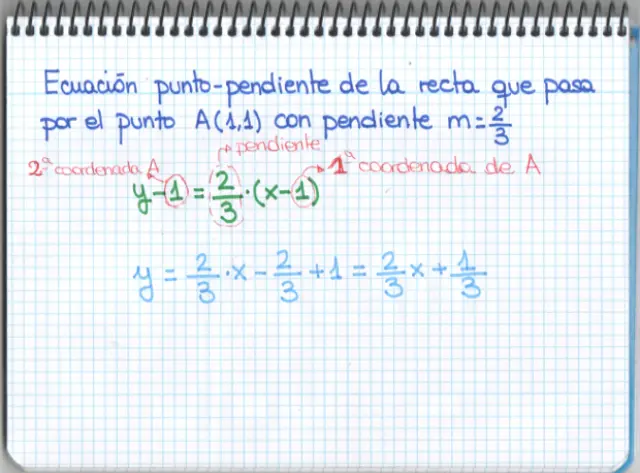 Ecuación punto-pendiente de la recta que pasa
por el punto A(1,1) con pendiente m=2/3
pendiente
2ª coordenada A
1ª coordenada de A
y-1=2/3·(x-1)
y=2/3·x-2/3+1=2/3x+1/3